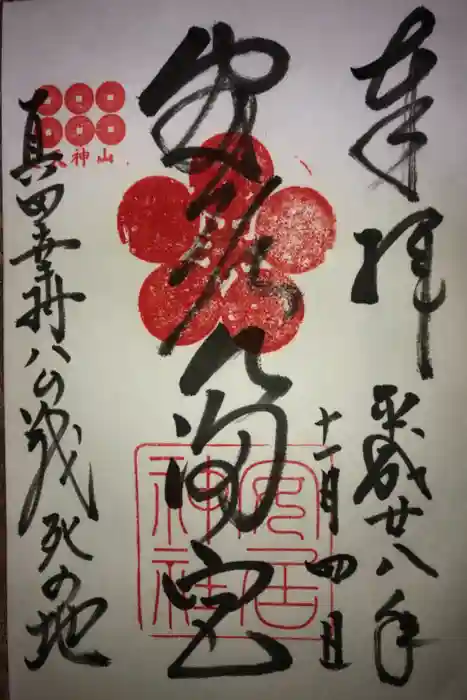 奉拝
平成廿八年
十一月四日
安居天満宮
安居神社
神山
真田幸村公戦死の地